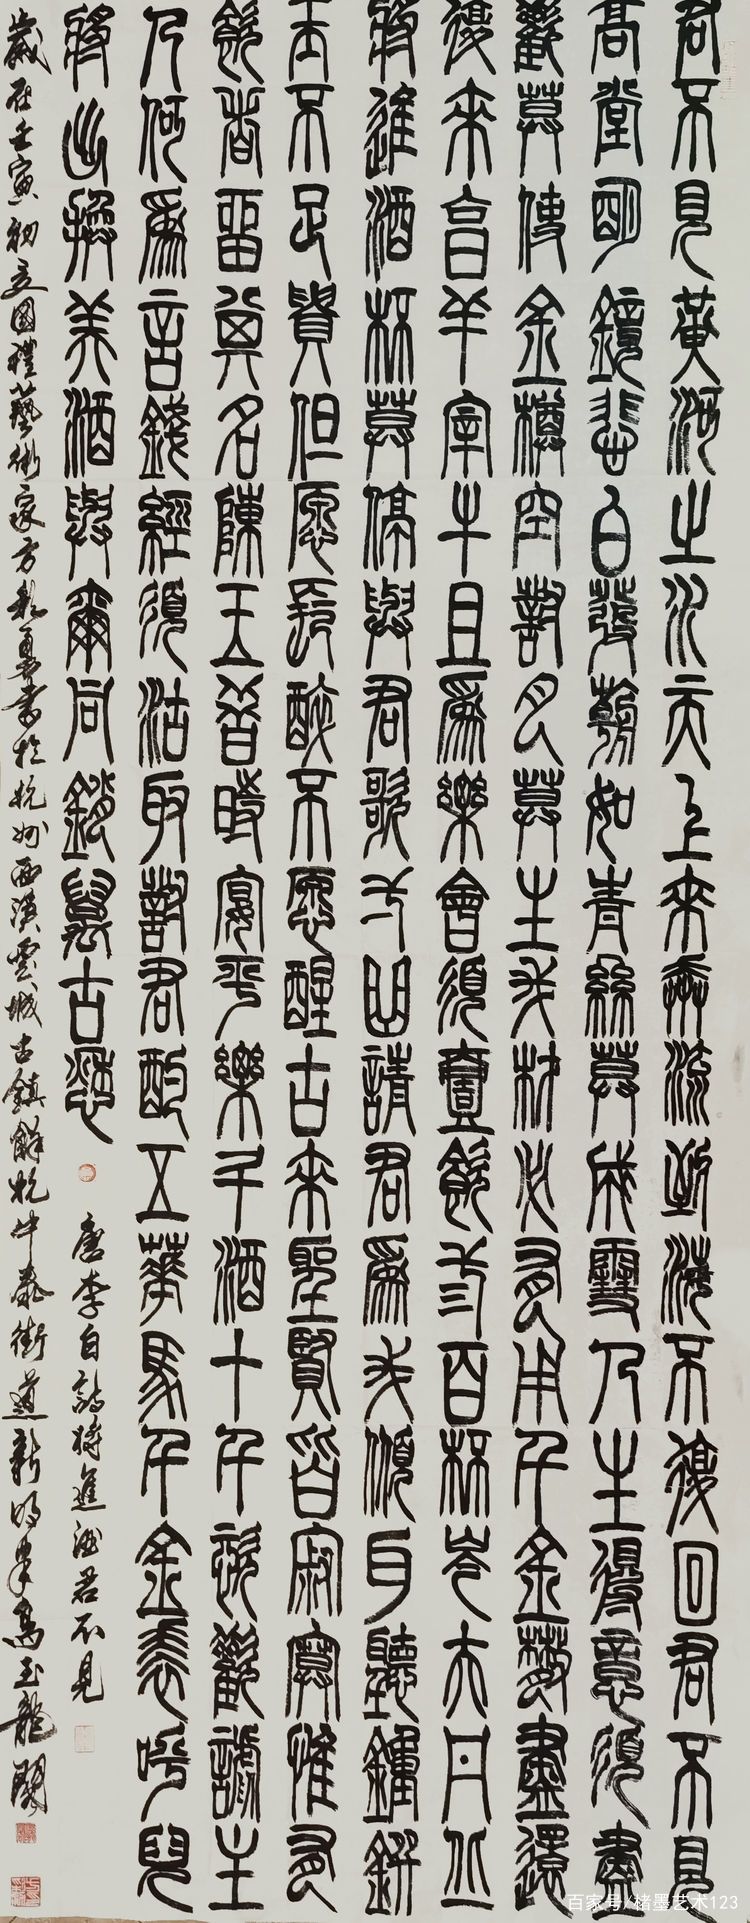 君不見黃河之水天上來奔流到海不復回君不見
高堂明鏡悲白髮朝如青絲莫成雪人生得意須盡
歡莫使金樽空對月莫生我材必有用千金散盡還
復來烹羊宰牛且為樂會須壹飲三百杯岑夫丹丘
將進酒杯莫停與君歌一曲請君為我傾耳聽鐘
玉不足貴但願長醉不願醒古來聖賢皆寂寞惟有
飲者留其名陳王昔時宴平樂斗酒十千恣歡謔主
人何為言錢經須沽取對君酌五華馬千金裘呼兒
將出換美酒與爾同銷萬古愁
唐李白詩將進酒君不見
歲在壬寅初立國禮藝術家方勇書於杭州西溪雲城古鎮餘杭中泰街道新明半島玉龍閣
百家号/楮墨艺术123